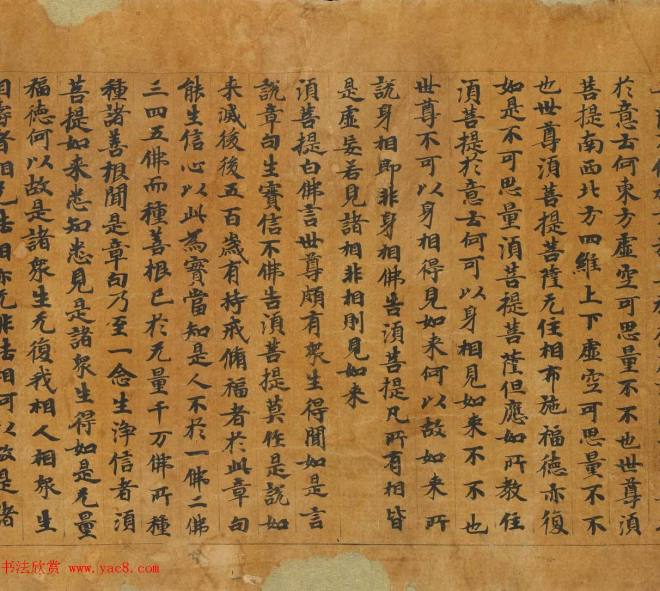 於意云何東方虛空可思量不不也世尊須
菩提南西北方四維上下虛空可思量不不
也世尊須菩提菩薩无住相布施福德亦復
如是不可思量須菩提菩薩但應如所教住
須菩提於意云何可以身相見如来不不也
世尊不可以身相得見如来何以故如来所
說身相即非身相佛告須菩提凡所有相皆
是虛妄若見諸相非相則見如来
須菩提白佛言世尊頗有眾生得聞如是言
說章句生實信不佛告須菩提莫作是說如
来滅後後五百歲有持戒脩福者於此章句
能生信心以此為實當知是人不於一佛二佛
三四五佛而種善根已於无量千万佛所種
種諸善根聞是章句乃至一念生淨信者須
菩提如来悉知悉見是諸眾生得如是无量
福德何以故是諸眾生无復我相人相眾生
相壽者相无法相亦无非法相何以故是諸
书法欣赏 www.yac8.com